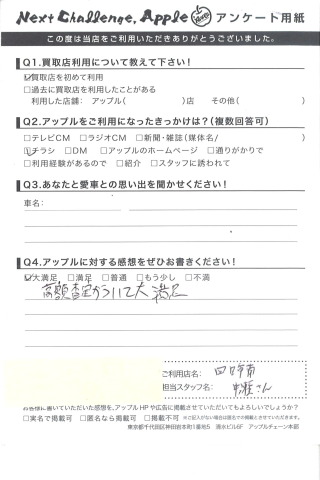 Next Challenge, Apple アンケート用紙
この度は当店をご利用いただきありがとうございました。
Q1.買取店利用について教えて下さい!
☑買取店を初めて利用
□過去に買取店を利用したことがある
利用した店舗: アップル( )店 その他( )
Q2.アップルをご利用になったきっかけは?(複数回答可)
□テレビCM □ラジオCM □新聞・雑誌(媒体名/ )
☑チラシ □DM □アップルのホームページ □通りがかりで
□利用経験があるので □紹介 □スタッフに誘われて
Q3.あなたと愛車との思い出を聞かせください!
車名:
Q4.アップルに対する感想をぜひお書きください!
☑大満足 □満足 □普通 □もう少し □不満
高額査定 大満足
ご利用店名: 四日市南
担当スタッフ名: さん
お客様に書いていただいた感想を、アップルHPや広告に掲載させていただいてもよろしいでしょうか?
□実名で掲載可 □匿名なら掲載可 □掲載不可 ※ご記入がない場合は匿名での掲載とさせていただきます。
東京都千代田区神田岩本町1番地5 清水ビル6F アップルチェーン本部